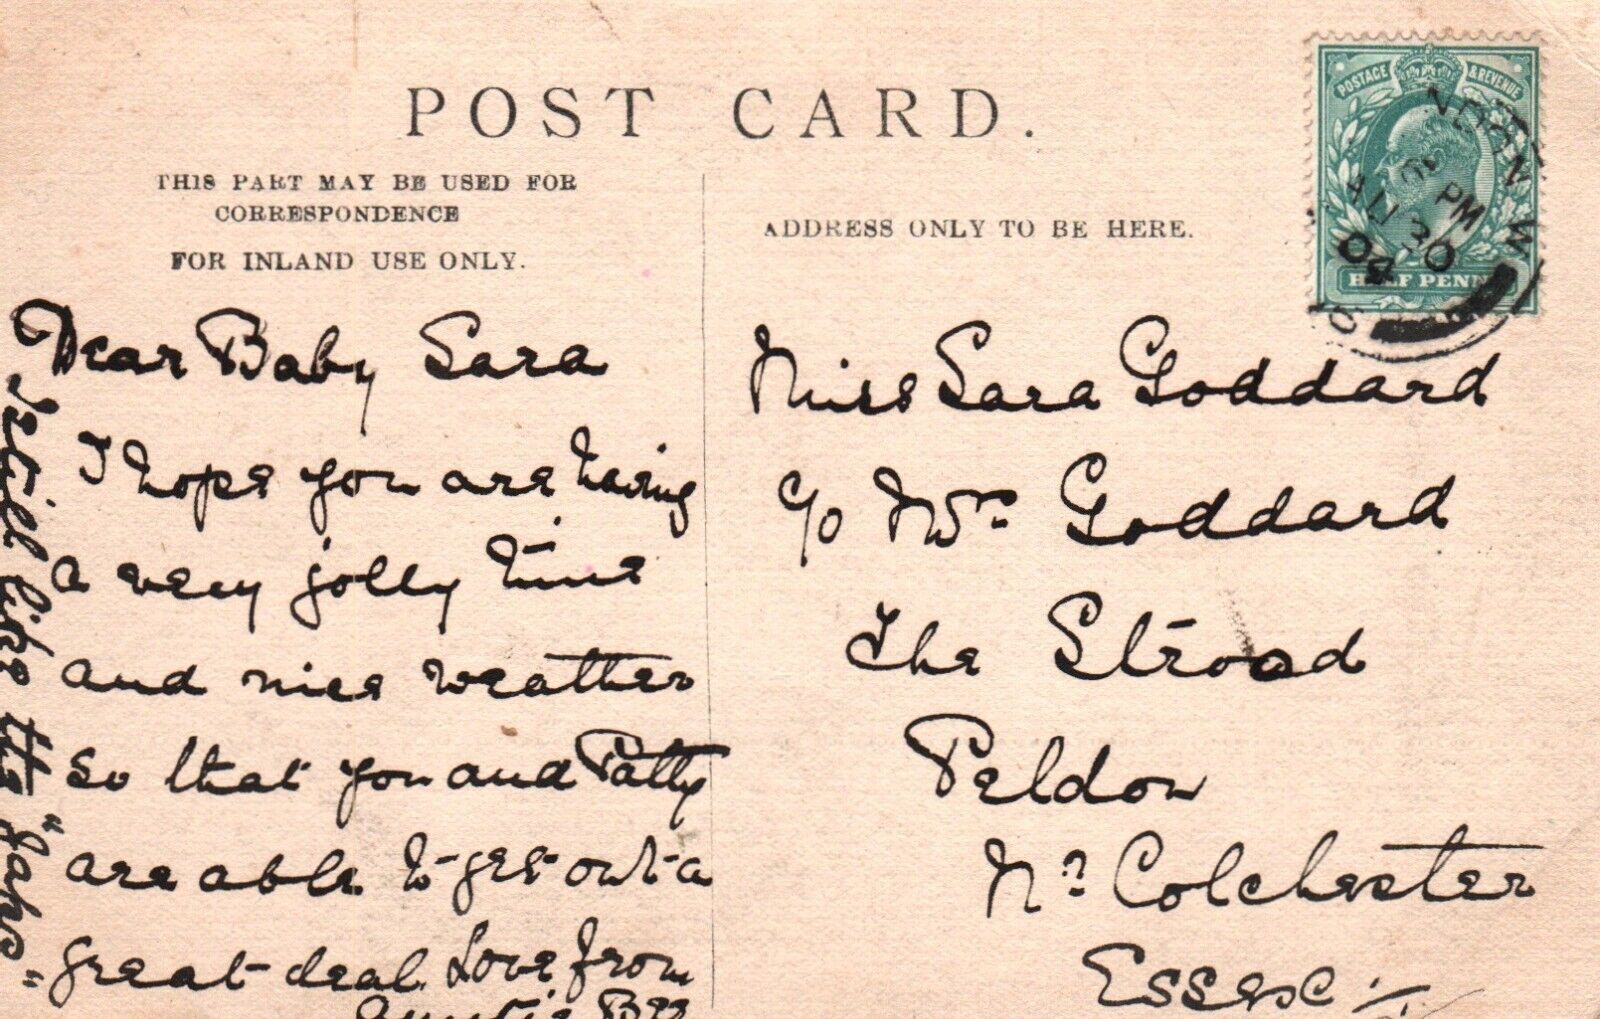 POST CARD.
THIS PART MAY BE USED FOR
CORRESPONDENCE
FOR INLAND USE ONLY.
ADDRESS ONLY TO BE HERE.
POSTAGE & REVENUE
PM
AU 30
04
HALF PENNY
Dear Baby Sara
I hope you are having
a very jolly time
and nice weather
so that you and Patty
are able to get out a
great deal. Love from
Auntie Bee
Miss Sara Goddard
c/o Mrs Goddard
The Strood
Peldon
Nr Colchester
Essex
like the